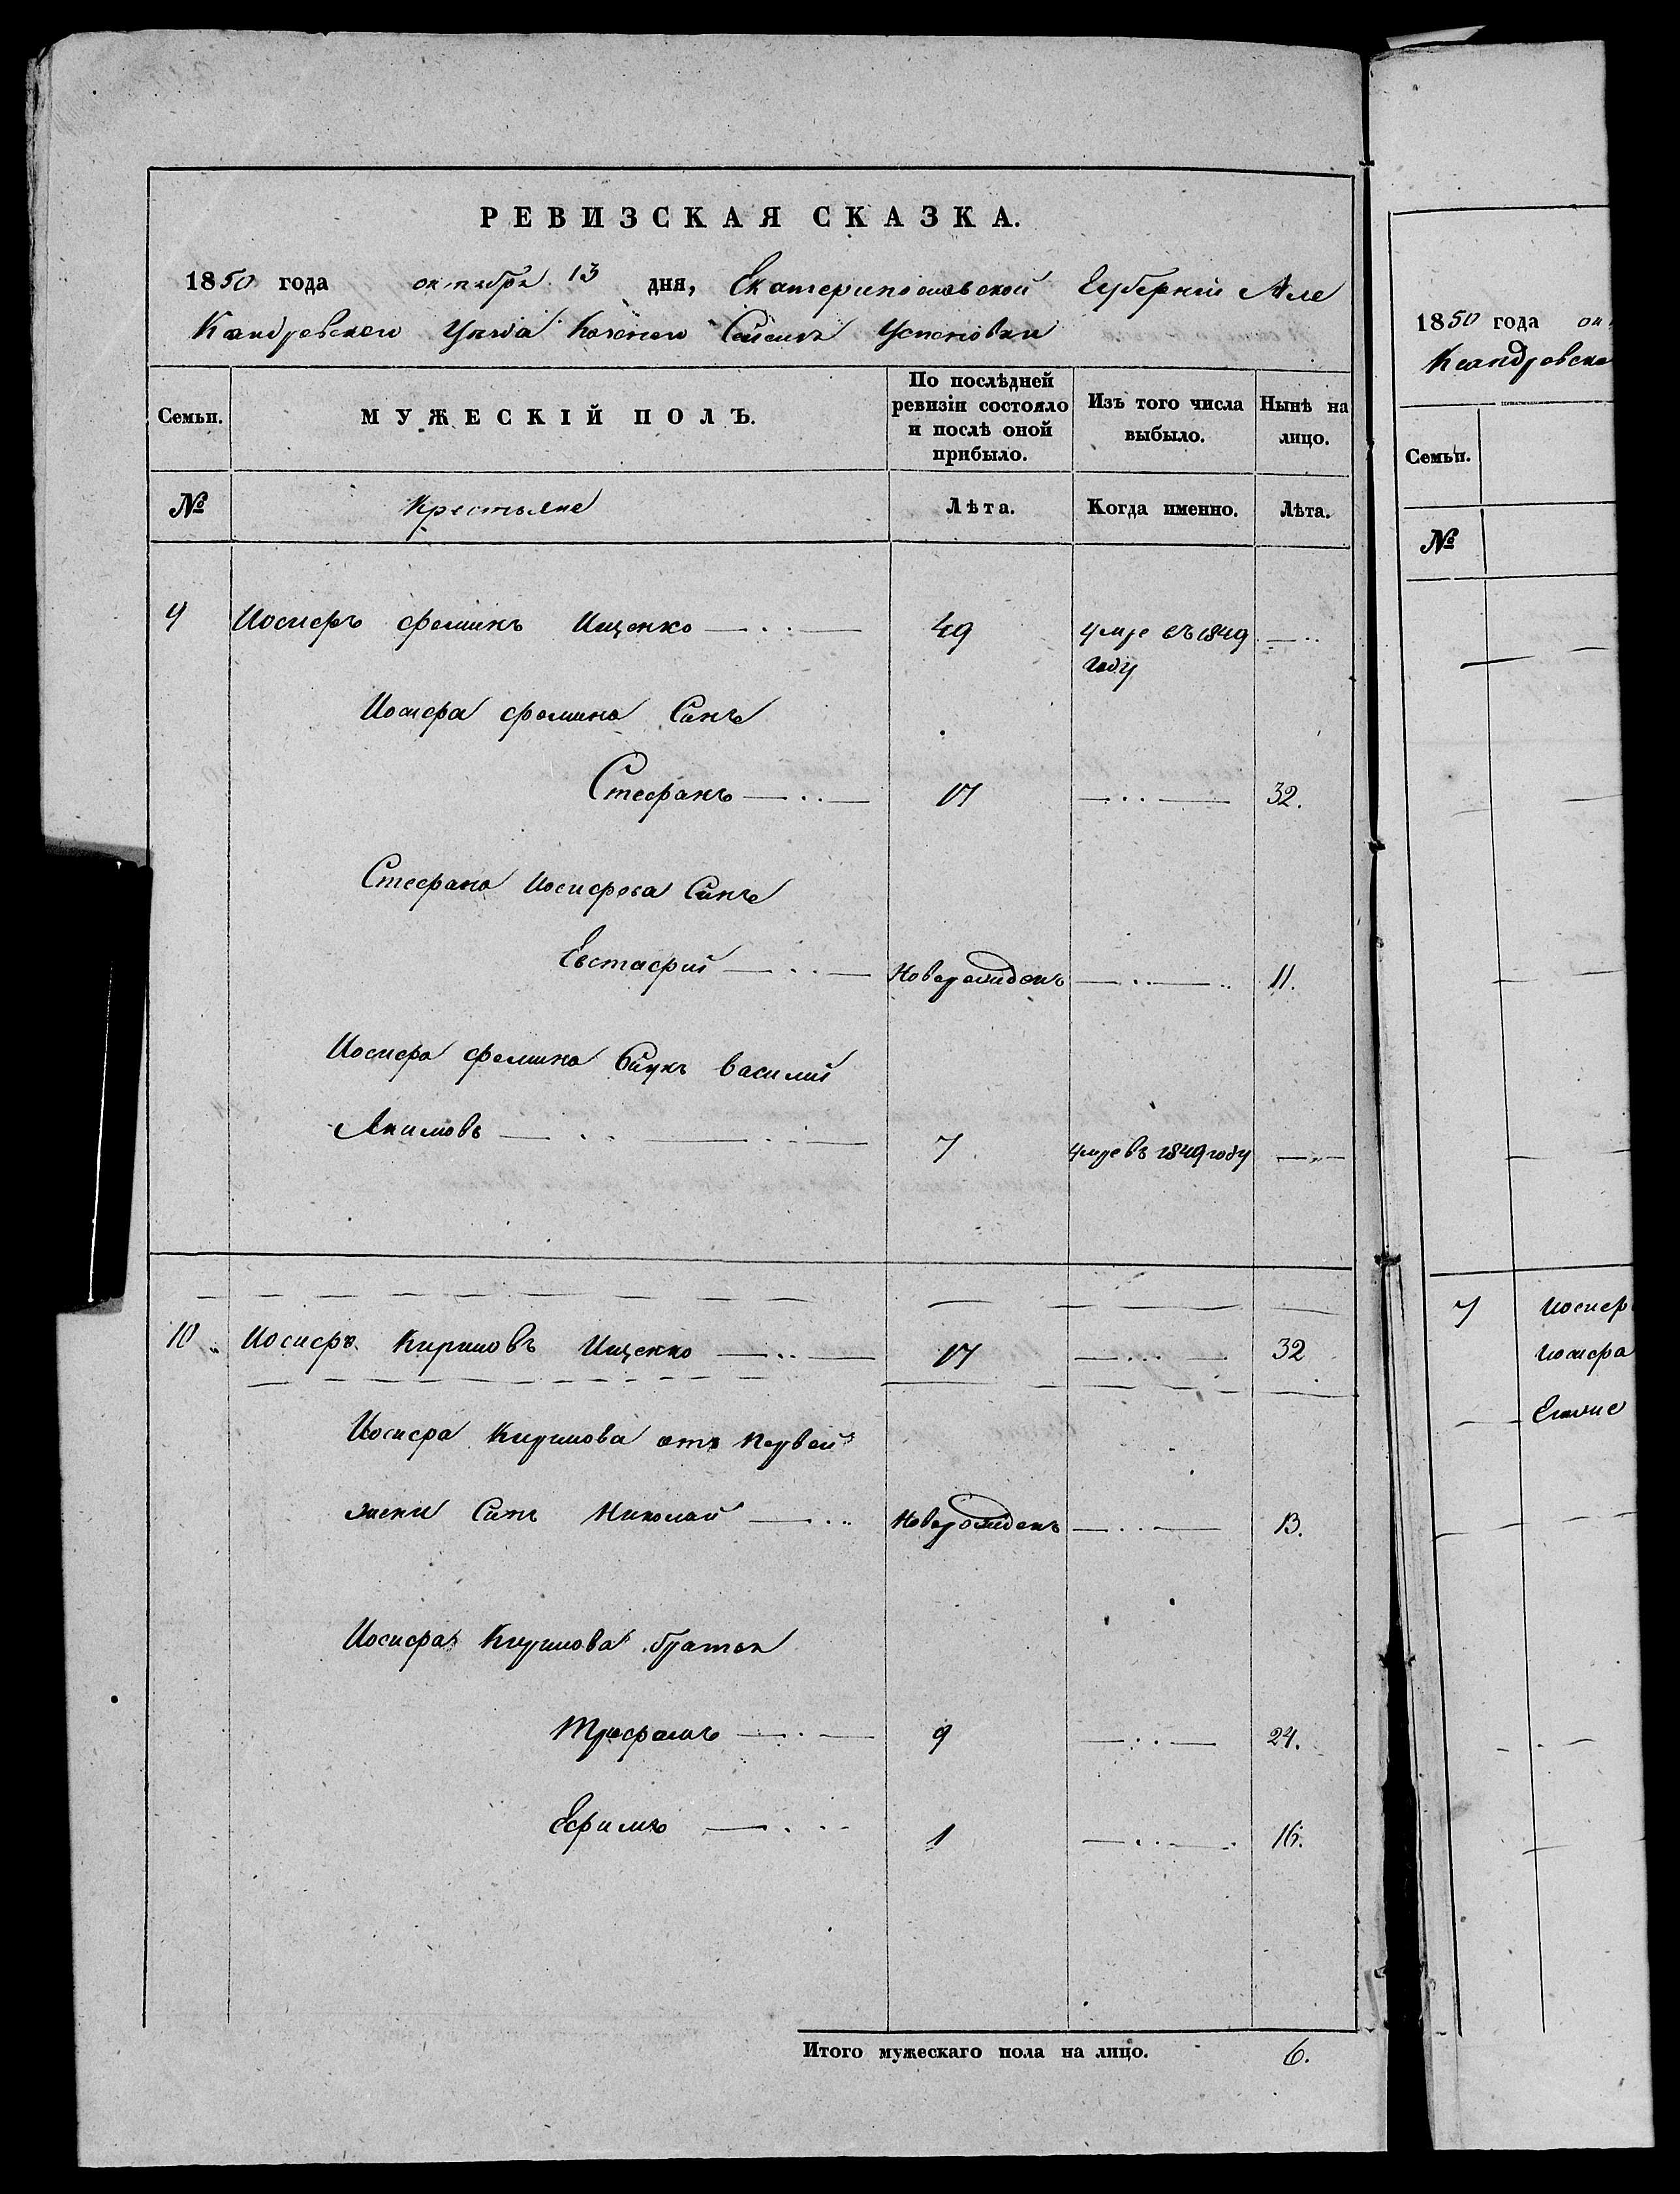 РЕВИЗСКАЯ СКАЗКА.
1850 года октября 13 дня, Екатеринославской Губернии Але
Кандровского Уезда Казеного Селения Успеновки
Семьи. МУЖЕСКІЙ ПОЛЪ. По послѣдней ревизіи состояло и послѣ оной прибыло. Изъ того числа выбыло. Нынѣ на лицо.
№ Крестьяне Лѣта. Когда именно. Лѣта.
9 Иосифъ фоминъ Ищенко 49 умре въ 1849
году
Иосифа фомина Синъ
Стефанъ 17 32.
Стефана Иосифова Синъ
Евстафий Новорожденъ 11.
Иосифа фомина Внукъ василий
Акимовъ 7 умре въ 1849 году
10 Иосифъ Кириловъ Ищенко 17 32
Иосифа Кирилова отъ Первой
жени Синъ Николай Новорожденъ 13.
Иосифа Кирилова братья
Трофимъ 9 24.
Ефимъ 1 16.
Итого мужескаго пола на лицо. 6.
1850 года ок
Ксандровско
Семьи.
№
7 Иосиф
Иосифа